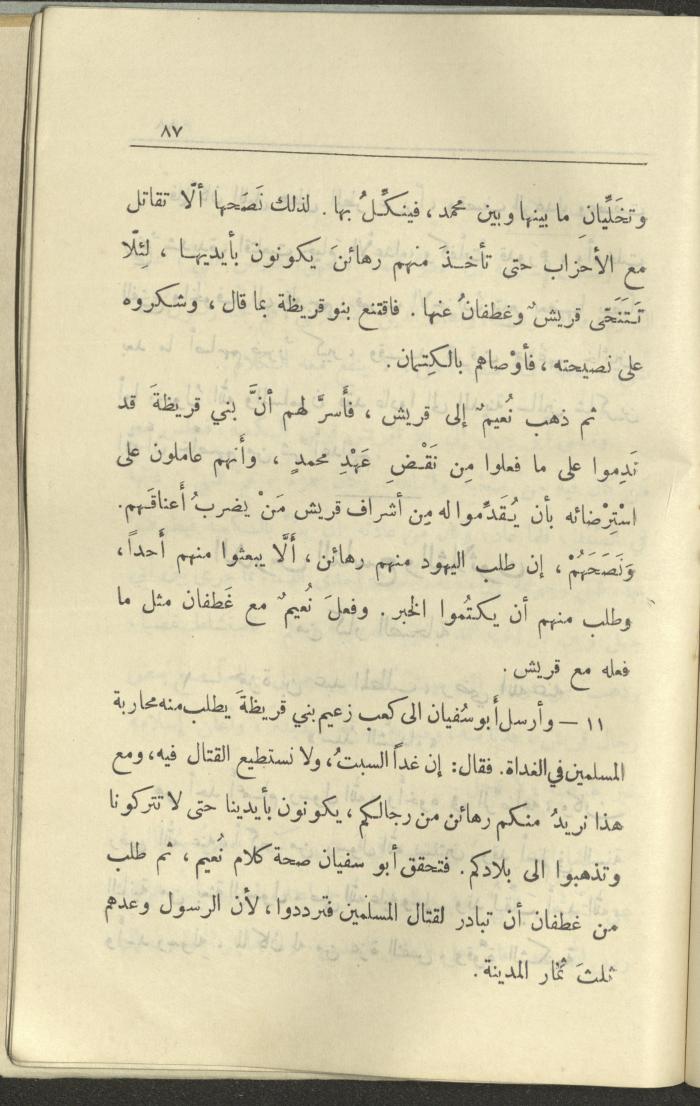 ٨٧
وتخَلِّيانِ ما بينها وبين محمد، فينكِّلُ بها. لذلك نَصَحها ألّا تقاتل
مع الأحزاب حتى تأخذَ منهم رهائنَ يكونون بأيديها، لِئلّا
تَتَنَحّى قريشٌ وغطفانُ عنها. فاقتنع بنو قريظة بما قال، وشكروه
على نصيحته، فأوْصاهم بالكِتمان.
ثم ذهب نُعيمٌ إلى قريش، فأَسرَّ لهم أنَّ بني قريظةَ قد
نَدِموا على ما فعلوا مِن نَقْضِ عَهْدِ محمدٍ، وأنهم عاملون على
اسْتِرْضائه بأن يُقدِّموا له مِن أشراف قريش مَنْ يضربُ أعناقَهم.
وَنَصَحَهُمْ، إن طلب اليهود منهم رهائن، أَلَّا يبعثوا منهم أَحداً،
وطلب منهم أن يكتُموا الخبر. وفعلَ نُعيمٌ مع غَطفان مثل ما
فعله مع قريش.
١١ — وأرسل أبو سُفيان الى كعب زعيم بني قريظةَ يطلب منه محاربة
المسلمين في الغداة. فقال: إن غداً السبتُ، ولا نستطيع القتال فيه، ومع
هذا نريدُ منكم رهائن من رجالكم، يكونون بأيدينا حتى لا تتركونا
وتذهبوا الى بلادكم. فتحقق أبو سفيان صحة كلام نُعيم، ثم طلب
من غطفان أن تبادر لقتال المسلمين فترددوا، لأن الرسول وعدهم
ثلثَ ثمار المدينة.